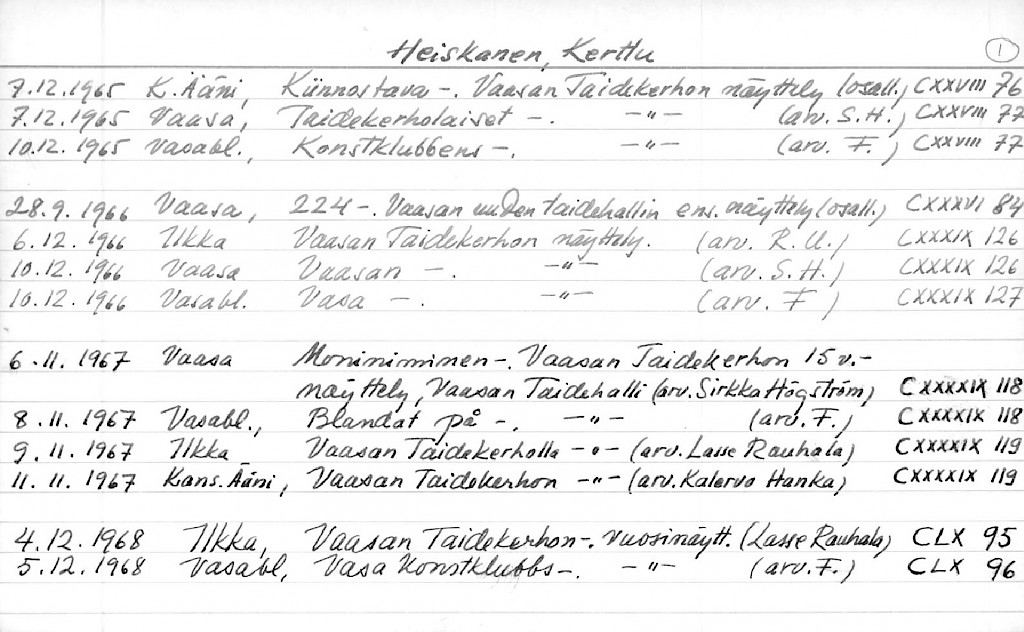 Heiskanen, Kerttu
1
7.12.1965 K. Ääni, Kiinnostava -. Vaasan Taidekerhon näyttely (osall.) CXXVIII 76
7.12.1965 Vaasa, Taidekerholaiset -. -"- (arv. S.H.) CXXVIII 77
10.12.1965 Vasabl., Konstklubbens -. -"- (arv. F.) CXXVIII 77
28.9.1966 Vaasa, 224 -. Vaasan uuden taidehallin ens. näyttely (osall.) CXXXVI 84
6.12.1966 Ilkka Vaasan Taidekerhon näyttely. (arv. R.U.) CXXXIX 126
10.12.1966 Vaasa Vaasan -. -"- (arv. S.H.) CXXXIX 126
10.12.1966 Vasabl. Vasa -. -"- (arv. F) CXXXIX 127
6.11.1967 Vaasa Moniniminen -. Vaasan Taidekerhon 15 v.-
näyttely, Vaasan Taidehalli (arv. Sirkka Högström) CXXXXIX 118
8.11.1967 Vasabl., Blandat på -. -"- (arv. F.) CXXXXIX 118
9.11.1967 Ilkka Vaasan Taidekerholla -"- (arv. Lasse Rauhala) CXXXXIX 119
11.11.1967 Kans. Ääni, Vaasan Taidekerhon -"- (arv. Kalervo Hanka) CXXXXIX 119
4.12.1968 Ilkka, Vaasan Taidekerhon -. vuosinäytt. (Lasse Rauhala) CLX 95
5.12.1968 Vasabl, Vasa Konstklubbs -. -"- (arv. F.) CLX 96